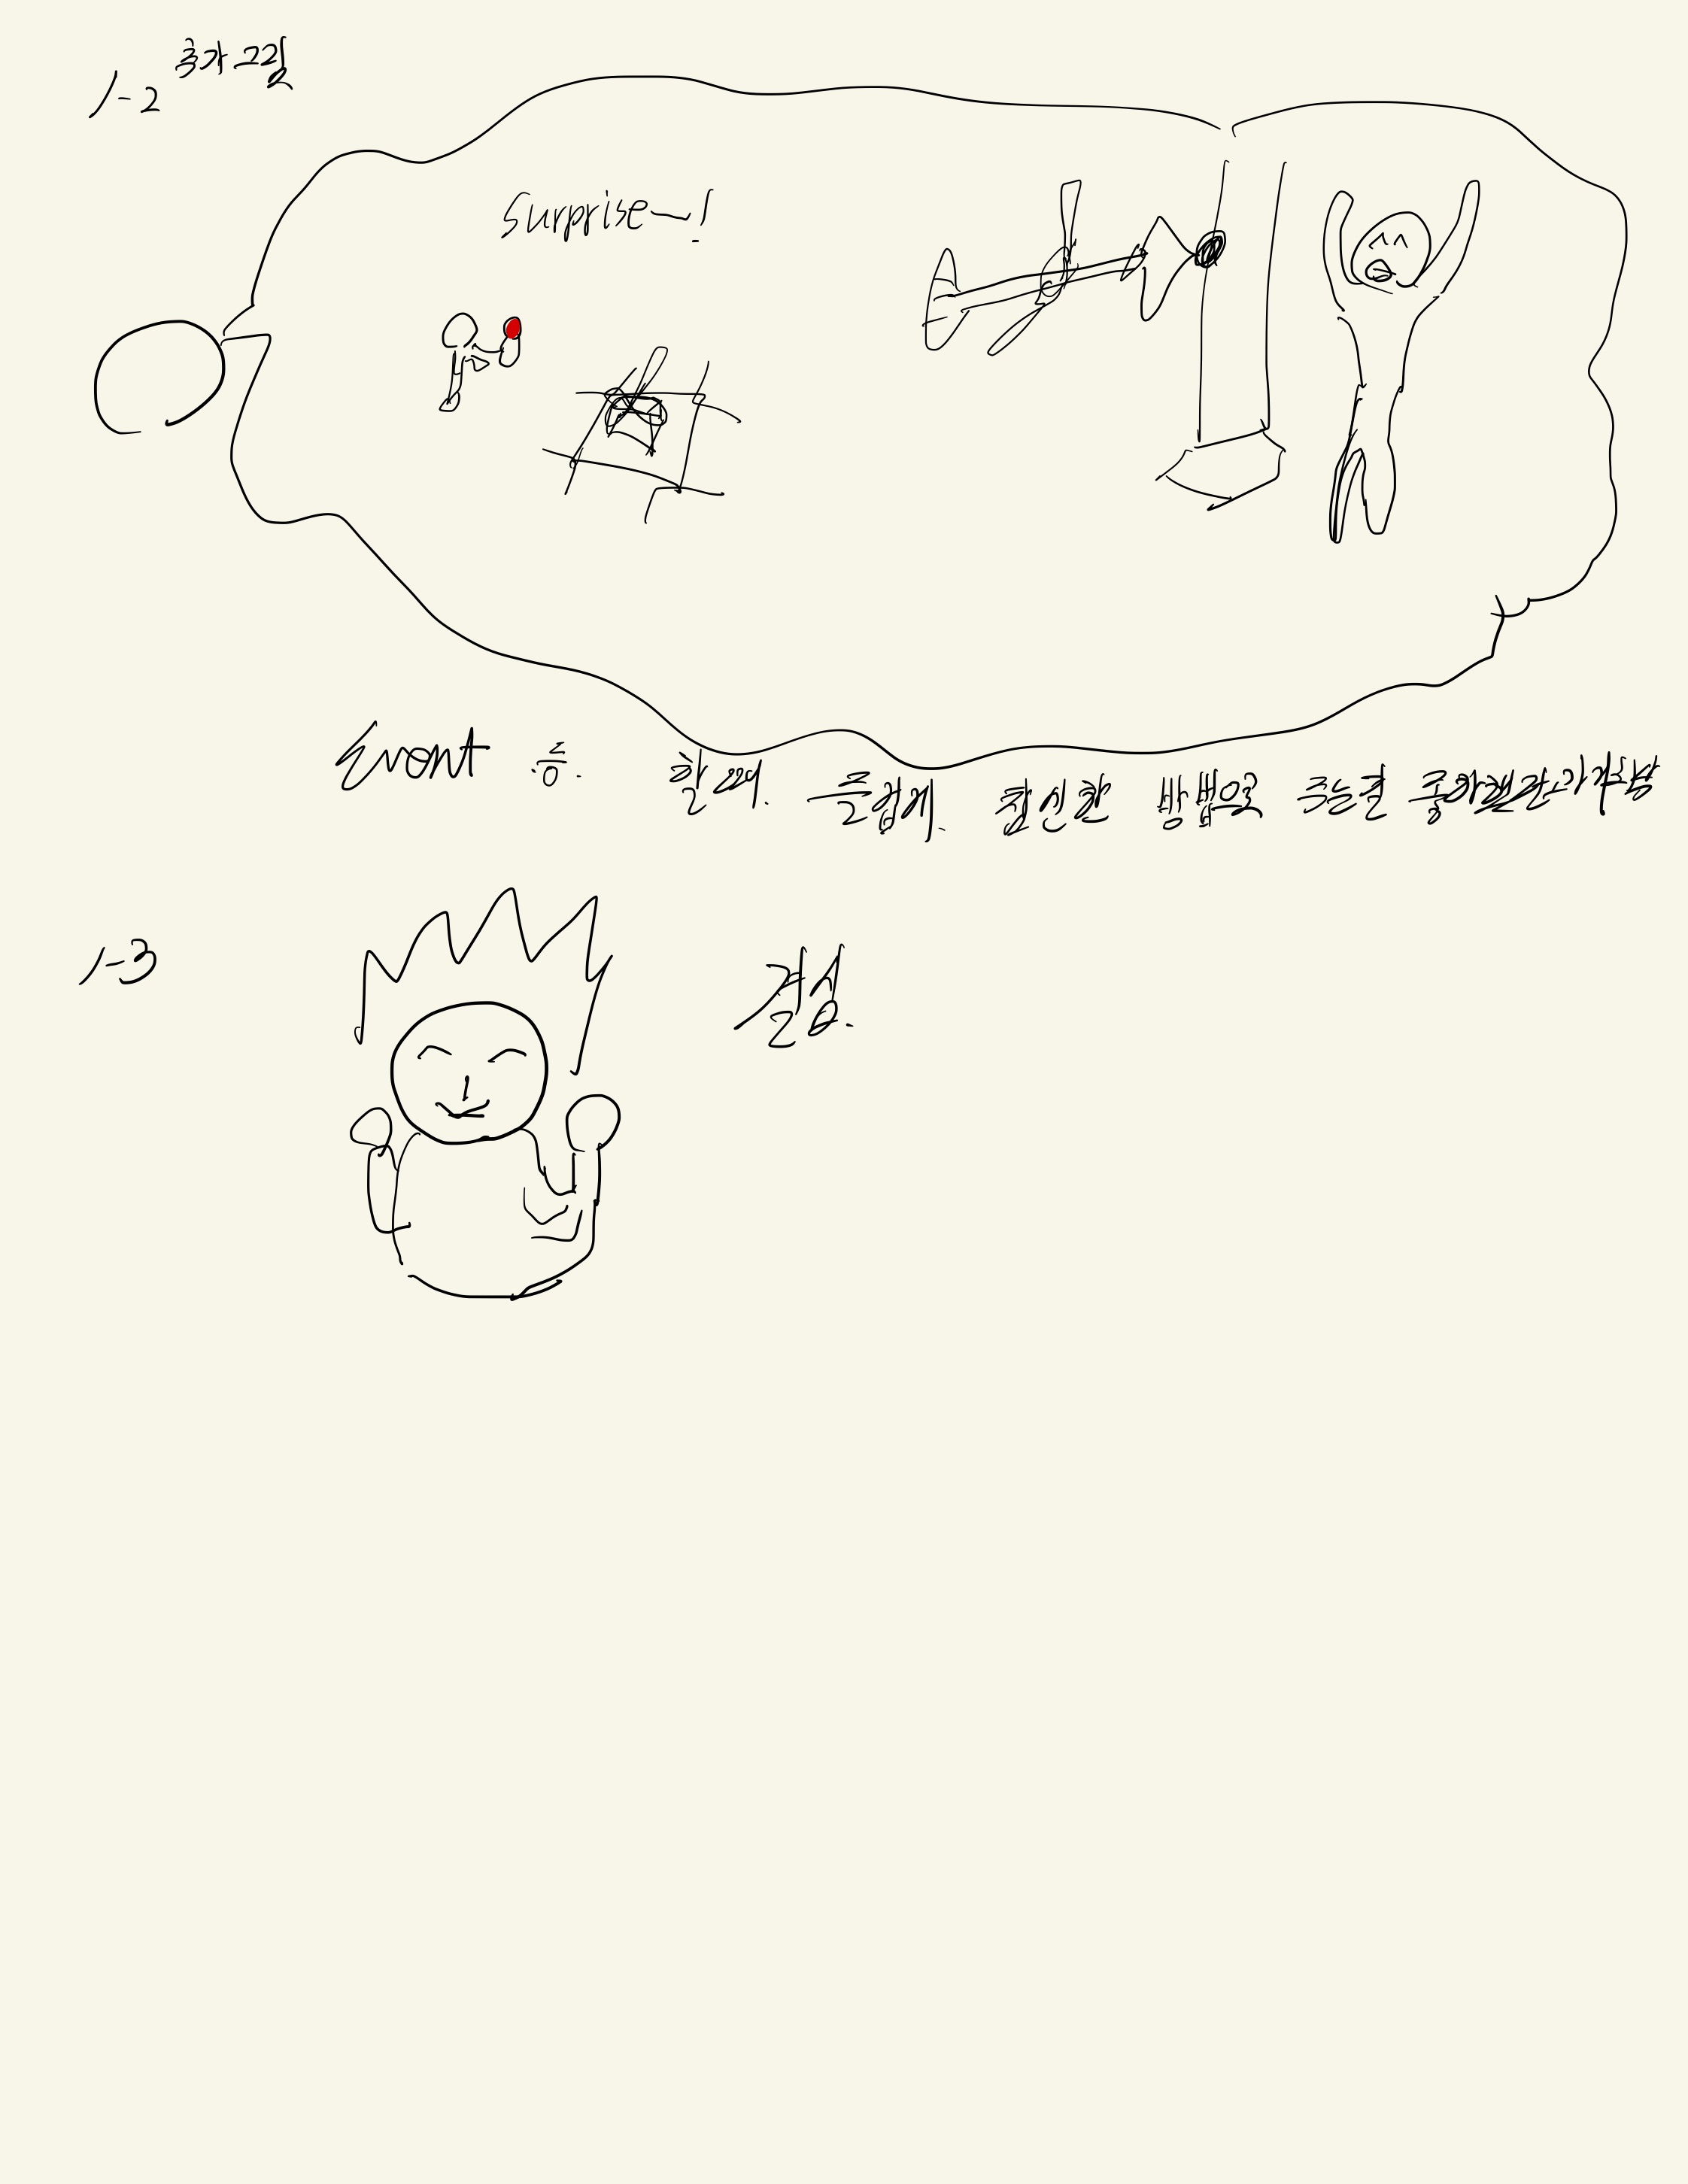 1-2 추가그림
Surprise~!
Event 등. 할때. 즐겁게. 참신한 방법으로 주는걸 좋아한다
1-3
결심.